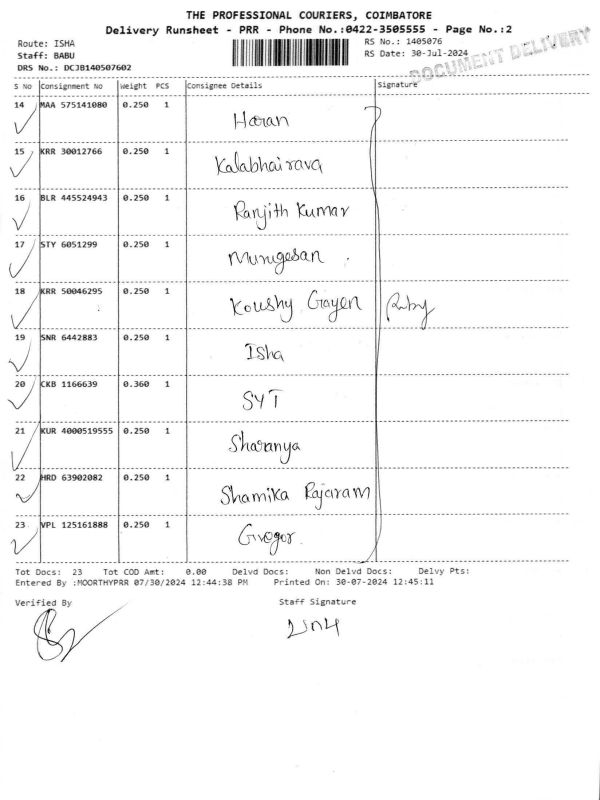 THE PROFESSIONAL COURIERS, COIMBATORE
Delivery Runsheet - PRR - Phone No.:0422-3505555 - Page No.:2
Route: ISHA
Staff: BABU
DRS No.: DCJB140507602
RS No.: 1405076
RS Date: 30-Jul-2024
DOCUMENT DELIVERY
S No Consignment No Weight PCS Consignee Details Signature
14 MAA 575141080 0.250 1 Haran
15 KRR 30012766 0.250 1 Kalabhairava
16 BLR 445524943 0.250 1 Ranjith Kumar
17 STY 6051299 0.250 1 Murugesan
18 KRR 50046295 0.250 1 Koushy Gayen Ruby
19 SNR 6442883 0.250 1 Isha
20 CKB 1166639 0.360 1 SYT
21 KUR 4000519555 0.250 1 Sharanya
22 HRD 63902082 0.250 1 Shamika Rajaram
23 VPL 125161888 0.250 1 Gregor
Tot Docs: 23 Tot COD Amt: 0.00 Delvd Docs: Non Delvd Docs: Delvy Pts:
Entered By :MOORTHYPRR 07/30/2024 12:44:38 PM Printed On: 30-07-2024 12:45:11
Verified By Staff Signature